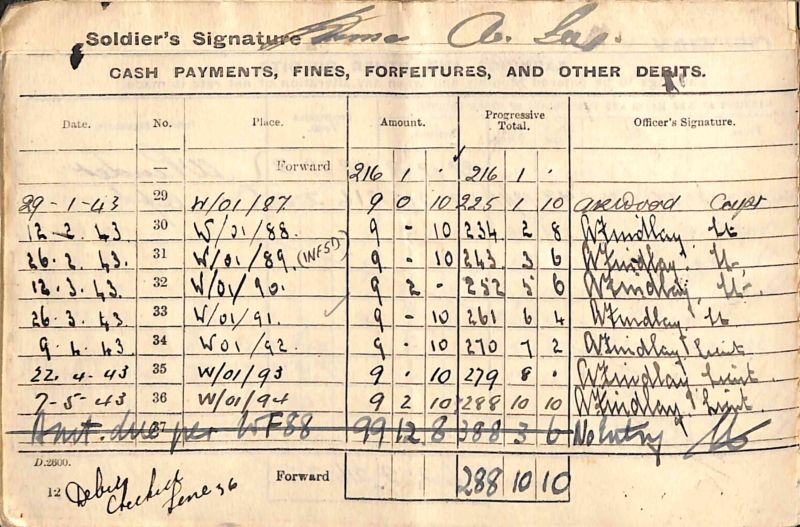 Soldier's Signature A. Lee.
CASH PAYMENTS, FINES, FORFEITURES, AND OTHER DEBITS.
Date. No. Place. Amount. Progressive Total. Officer's Signature.
— Forward 216 1 · 216 1 ·
29-1-43 29 W/01/87 9 0 10 225 1 10 Capt
12-2-43 30 W/01/88. 9 - 10 234 2 8 A Findlay Lt
26.2.43. 31 W/01/89. (INFSD) 9 - 10 243 3 6 A Findlay Lt.
12.3.43. 32 W/01/90. 9 2 - 252 5 6 A Findlay Lt.
26.3.43 33 W/01/91. 9 - 10 261 6 4 A Findlay Lt
9.4.43. 34 W01/92. 9 · 10 270 7 2 A Findlay Lieut
22.4-43 35 W/01/93 9 · 10 279 8 · A Findlay Lieut.
7-5-43 36 W/01/94 9 2 10 288 10 10 A Findlay Lieut.
Amt. due per WF88 37 99 12 8 388 3 6 No Entry
D.2600.
12 Forward 288 10 10
Debits
Checked
Line 36